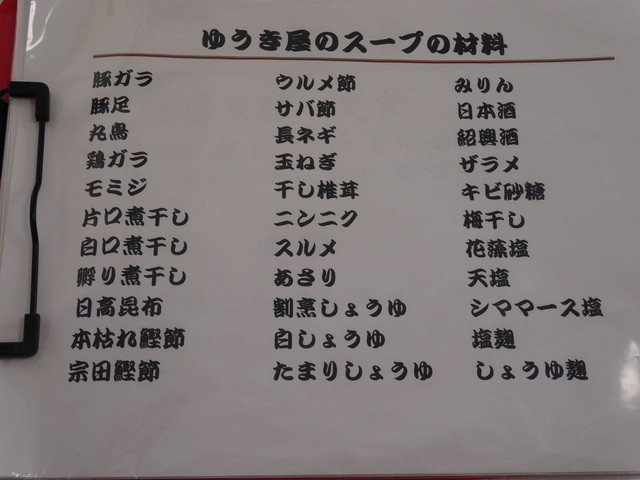 ゆうき屋のスープの材料
豚ガラ
豚足
丸鳥
鶏ガラ
モミジ
片口煮干し
白口煮干し
孵り煮干し
日高昆布
本枯れ鰹節
宗田鰹節
ウルメ節
サバ節
長ネギ
玉ねぎ
干し椎茸
ニンニク
スルメ
あさり
割烹しょうゆ
白しょうゆ
たまりしょうゆ
みりん
日本酒
紹興酒
ザラメ
キビ砂糖
梅干し
花藻塩
天塩
シママース塩
塩麹
しょうゆ麹